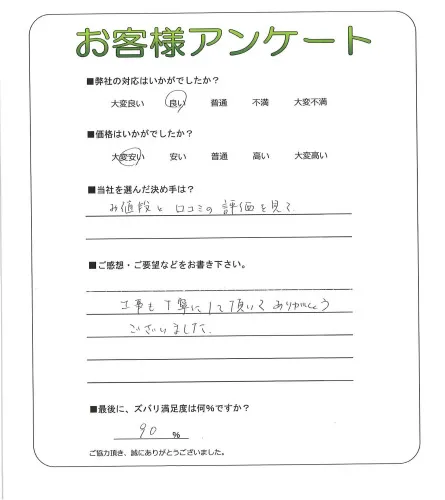 お客様アンケート
■弊社の対応はいかがでしたか?
大変良い 良い 普通 不満 大変不満
■価格はいかがでしたか?
大変安い 安い 普通 高い 大変高い
■当社を選んだ決め手は?
お値段と口コミの評価を見て
■ご感想・ご要望などをお書き下さい。
工事も丁寧にして頂いてありがとう
ございました。
■最後に、ズバリ満足度は何%ですか?
90 %
ご協力頂き、誠にありがとうございました。